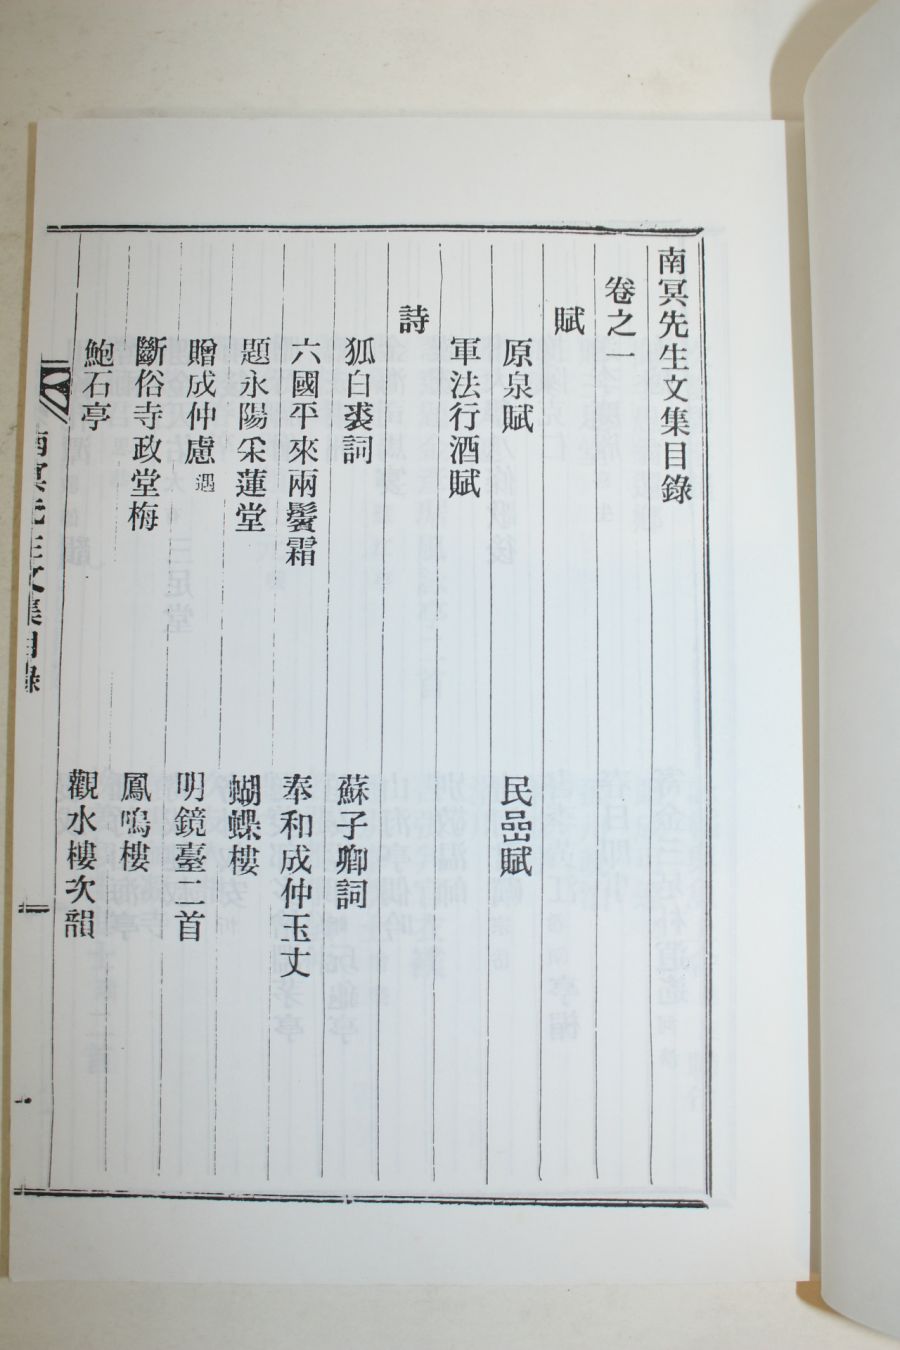 南冥先生文集目錄
卷之一
賦
原泉賦 民嵒賦
軍法行酒賦
詩
狐白裘詞 蘇子卿詞
六國平來兩鬢霜 奉和成仲玉丈
題永陽采蓮堂 蝴蝶樓
贈成仲慮遇 明鏡臺二首
斷俗寺政堂梅 鳳鳴樓
鮑石亭 觀水樓次韻
南冥先生文集目錄